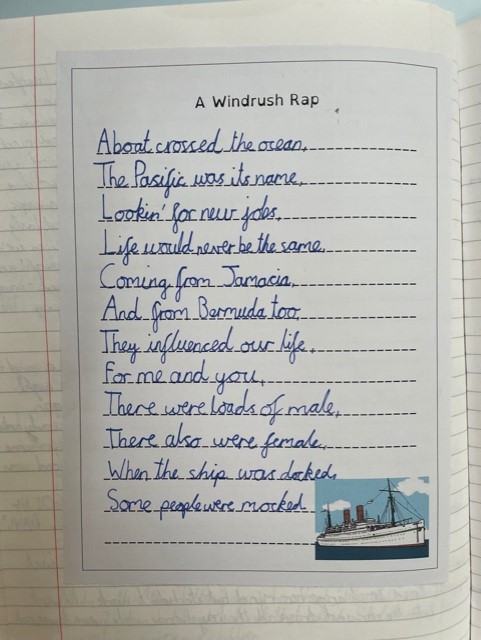 A Windrush Rap
A boat crossed the ocean,
The Pasific was its name,
Lookin' for new jobs,
Life would never be the same,
Coming from Jamacia,
And from Bermuda too,
They influenced our life,
For me and you,
There were loads of male,
There also were female,
When the ship was docked,
Some people were mocked